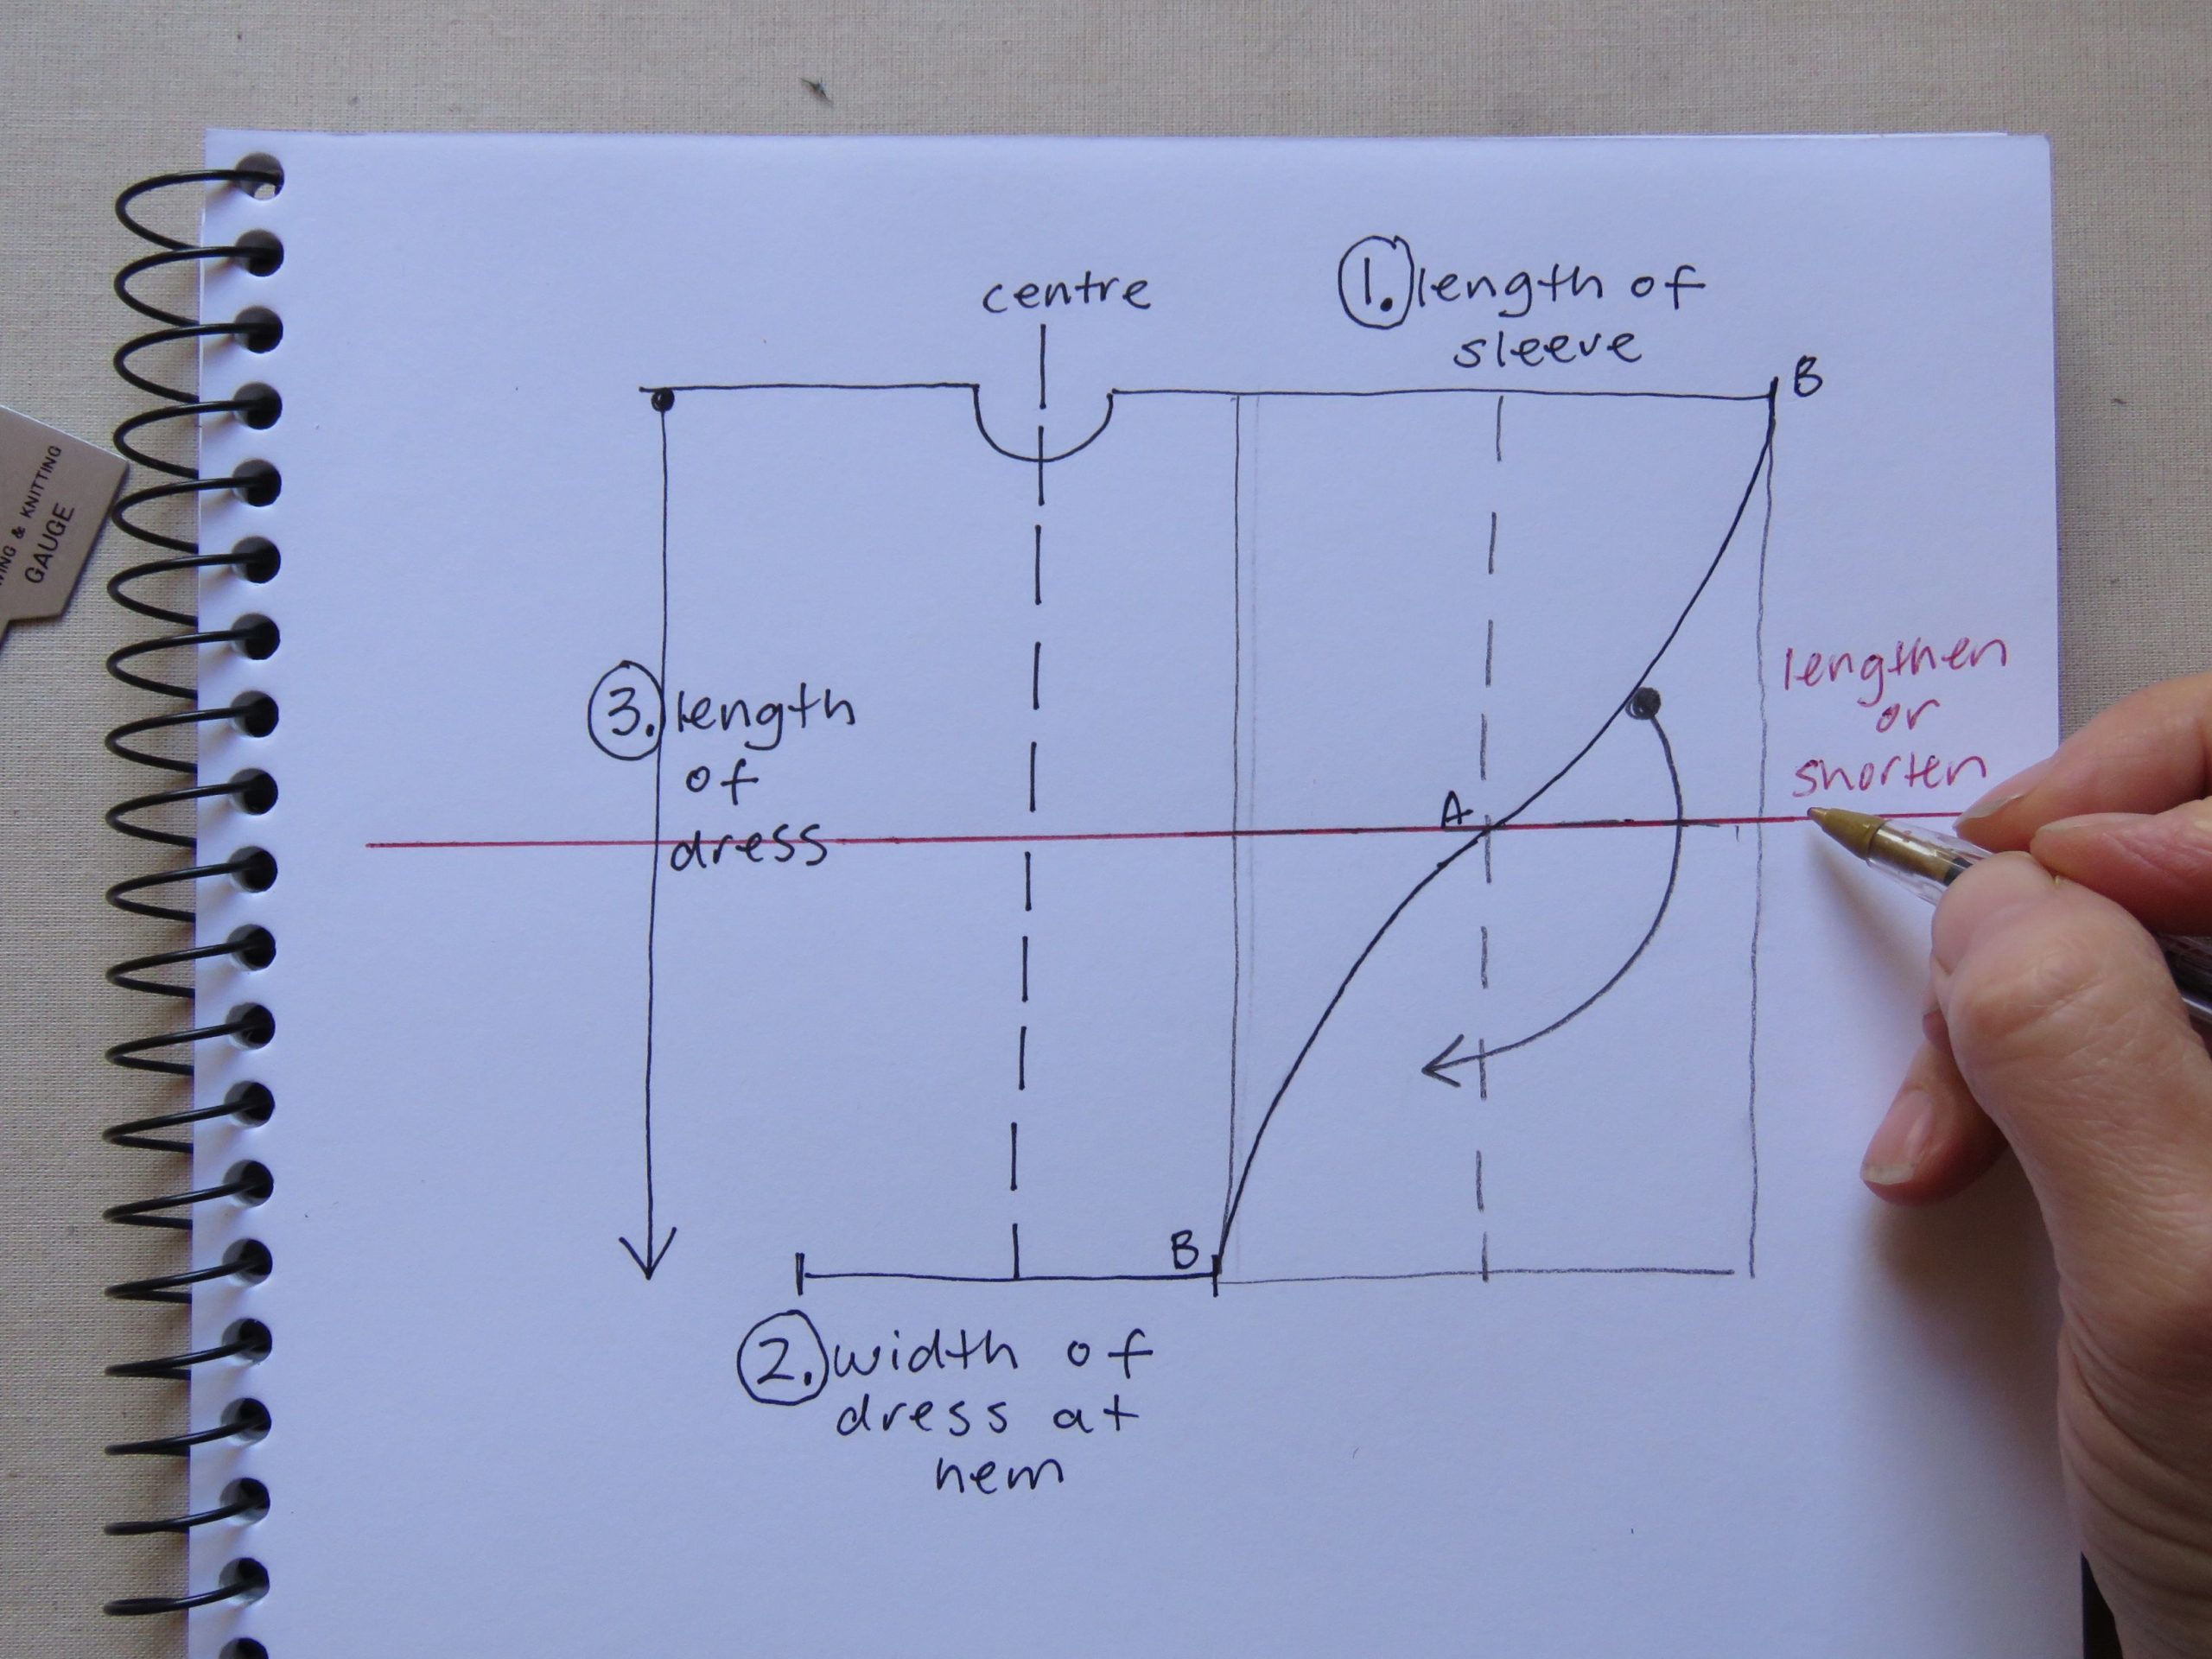 centre
1. length of
sleeve
B
KNITTING
GAUGE
lengthen
or
shorten
3. length
of
dress
A
B
2. width of
dress at
hem